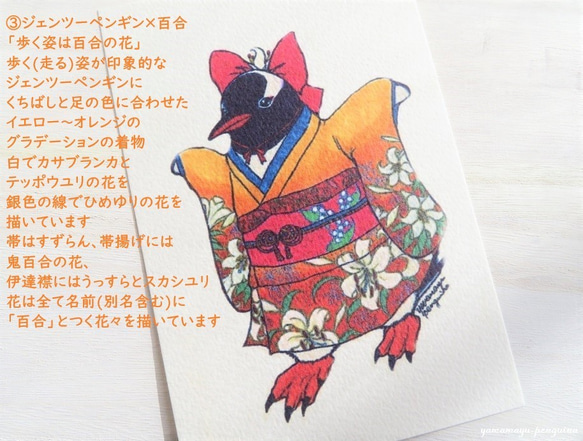 ③ジェンツーペンギン×百合
「歩く姿は百合の花」
歩く(走る)姿が印象的な
ジェンツーペンギンに
くちばしと足の色に合わせた
イエロー〜オレンジの
グラデーションの着物
白でカサブランカと
テッポウユリの花を
銀色の線でひめゆりの花を
描いています
帯はすずらん、帯揚げには
鬼百合の花、
伊達襟にはうっすらとスカシユリ
花は全て名前(別名含む)に
「百合」とつく花々を描いています
yamamayu-penguin